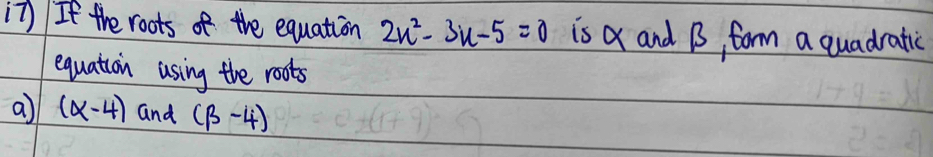 i7) If the roots of the equation 2x² - 3x - 5 = 0 is α and β, form a quadratic
equation using the roots
a) (α-4) and (β-4)